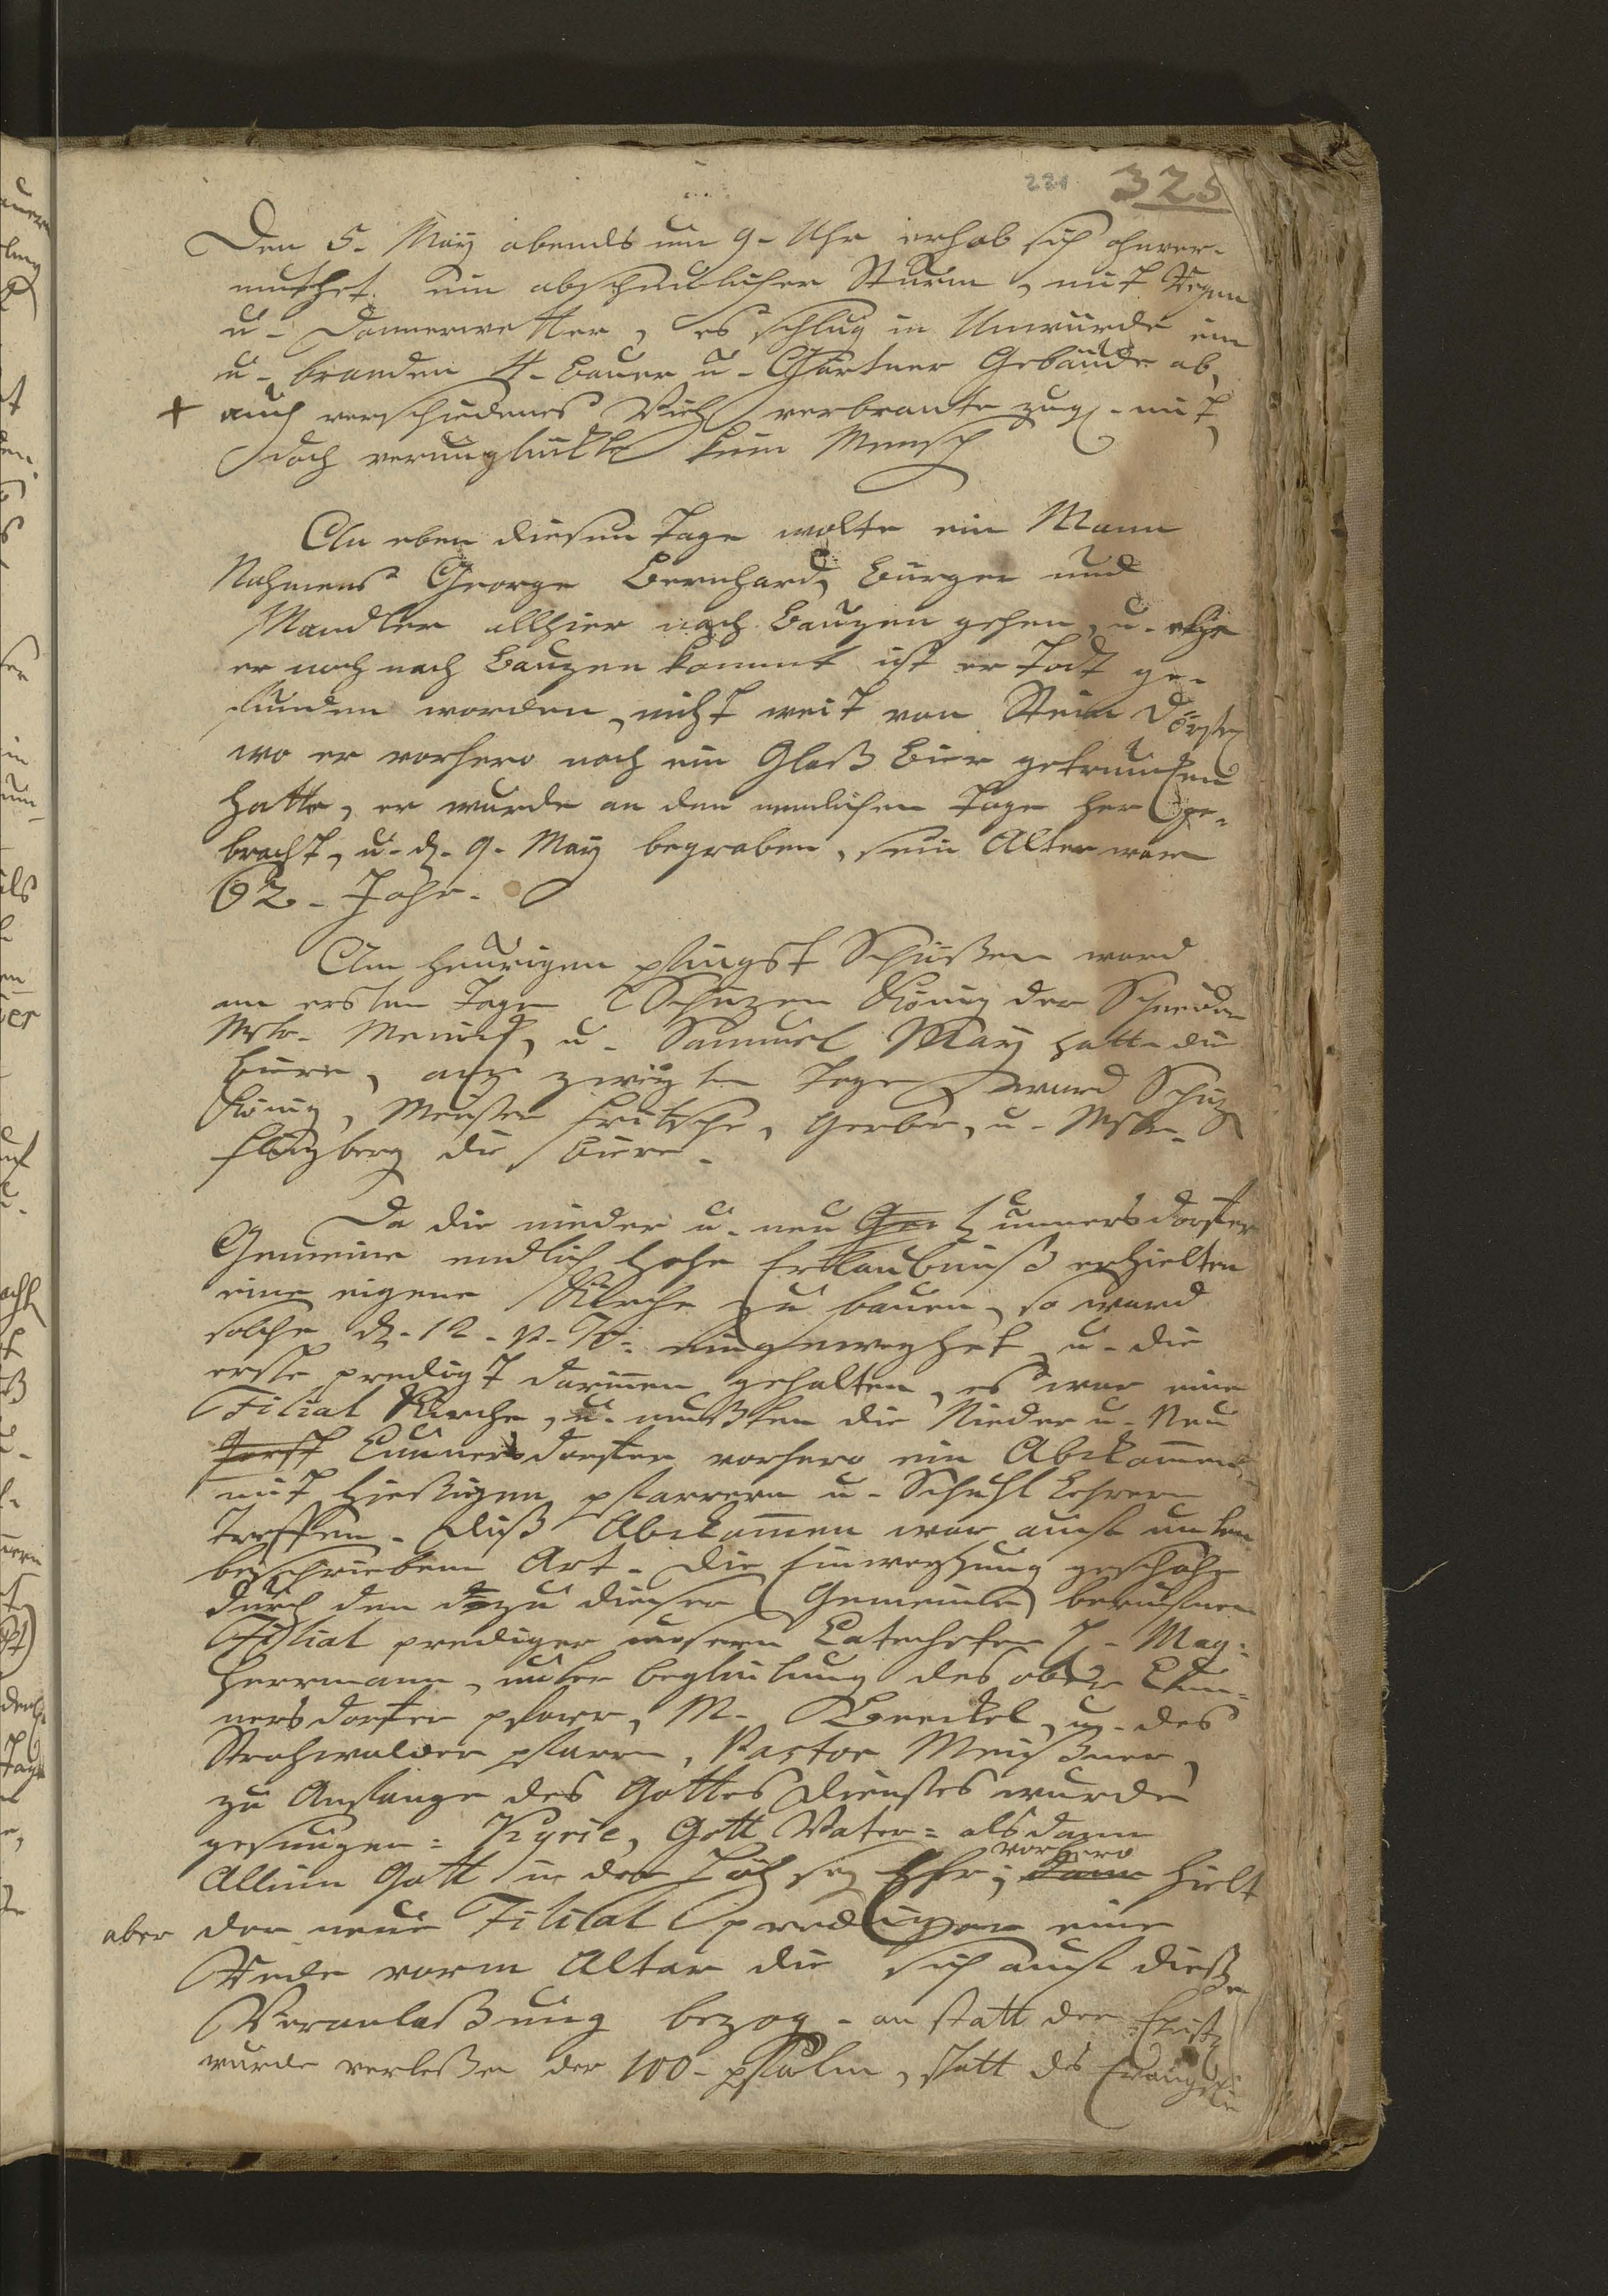 221 325
Den 5. May abends um 9. Uhr erhob sich ohnver-
muthet ein abscheulicher Sturm, mit Regen
u. Donnerwetter, es schlug in Unwürde ein
u. branden 4. Bauer u. Gärtner Gebäude ab,
+ auch verschiedenes Vieh verbrante zugl. mit,
doch verunglückte kein Mensch
An eben diesen Tage wolte ein Mann
Nahmens George Bernhard, Burger und
Mandler allhier nach Bauzen gehen, u. ehe
er noch nach Bauzen kommt ist er todt ge-
funden worden, nicht weit von Stein Dörfel
wo er vorhero noch ein Glaß Bier getruncken
hatte, er wurde an dem nemlichen Tage her ge-
bracht, u. d. 9. May begraben, sein Alter war
62. Jahr.
Am heurigen pfingst Schüßen ward
am ersten Tage Schüzen König der Schneider
Mstr. u. Samuel May hatte die
Büre, am zweyten Tage ward Schüz
König, Meister Fritsche, Gerber, u. Mstr.
Flözberg die Büre.
Da die nieder u. neu Cunnersdorfer
Gemeine endlich hohe Erlaubniß erhielten
eine eigene Kirche zu bauen, so ward
solche d. 12. p. Tr. eingeweyhet u. die
erste predigt darinnen gehalten, es war eine
Filial Kirche, u. mußten die Nieder u. Neu
Cunnersdorfer vorhero ein Abkommen
mit hießigen pfarrern u. Schuhl Lehrern
treffen. Diß Abkommen war auf unten
beschriebene Art. Die Einweyhung geschahe
durch den dazu dieser Gemeinde berufnen
Filial prediger unsern Catecheten H. Mag.
Herrmann, unter begleitung des ober Cun-
nersdorfer pfarr, M. u. des
Strahwalder pfarr, Pastor Meißner,
zu Anfange des Gottes Dienstes wurde
gesungen: Kyrie, Gott Vater: alsdann
Allein Gott in der Höh sey Ehr; dann vorhero hielt
aber der neue Filial prediger eine
Rede vorm Altar die sich auf dieße
Veranlaßung bezog. an statt der Epistel
wurde verleßen der 100. psalm, statt des Evangelii